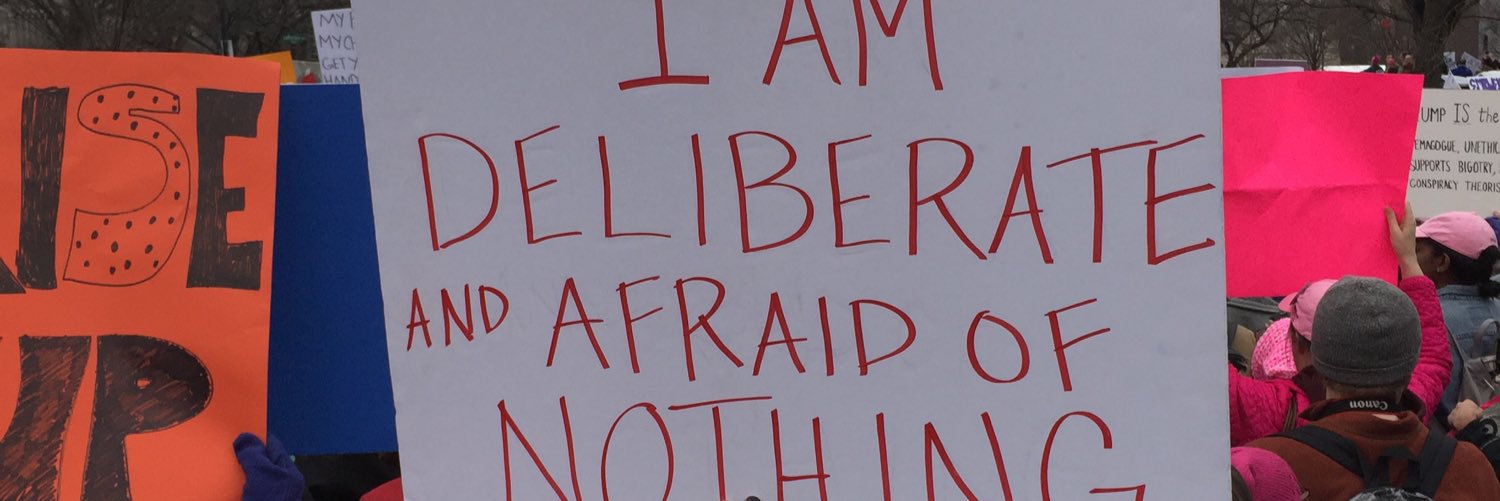 RISE
UP
MY
GET Y
HAND
I AM
DELIBERATE
AND AFRAID OF
NOTHING
UMP IS the
EMAGOGUE, UNETHIC
SUPPORTS BIGOTRY,
CONSPIRACY THEORIS
Canon